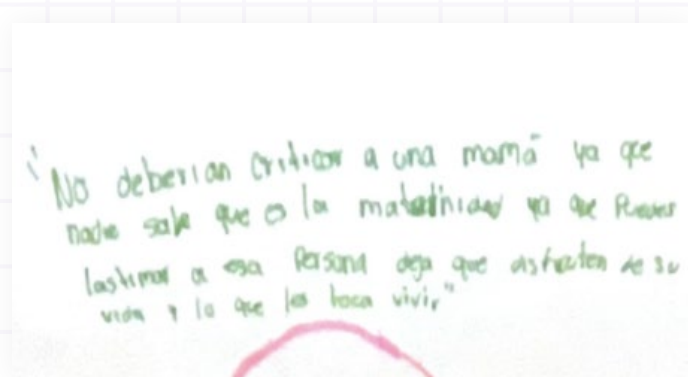 "No deberian criticar a una mamá ya que
nadie sabe que o la maternidad ya que Puedes
lastimar a esa Persona deja que disfruten de su
vida y lo que les toca vivir"